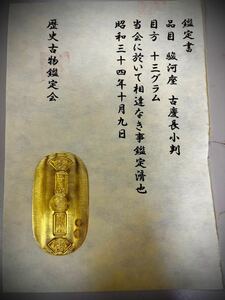 鑑定書
品目 駿河座 古慶長小判
目方 十三グラム
当会に於いて相違なき事鑑定済也
昭和三十四年十月九日
歴史古物鑑定会